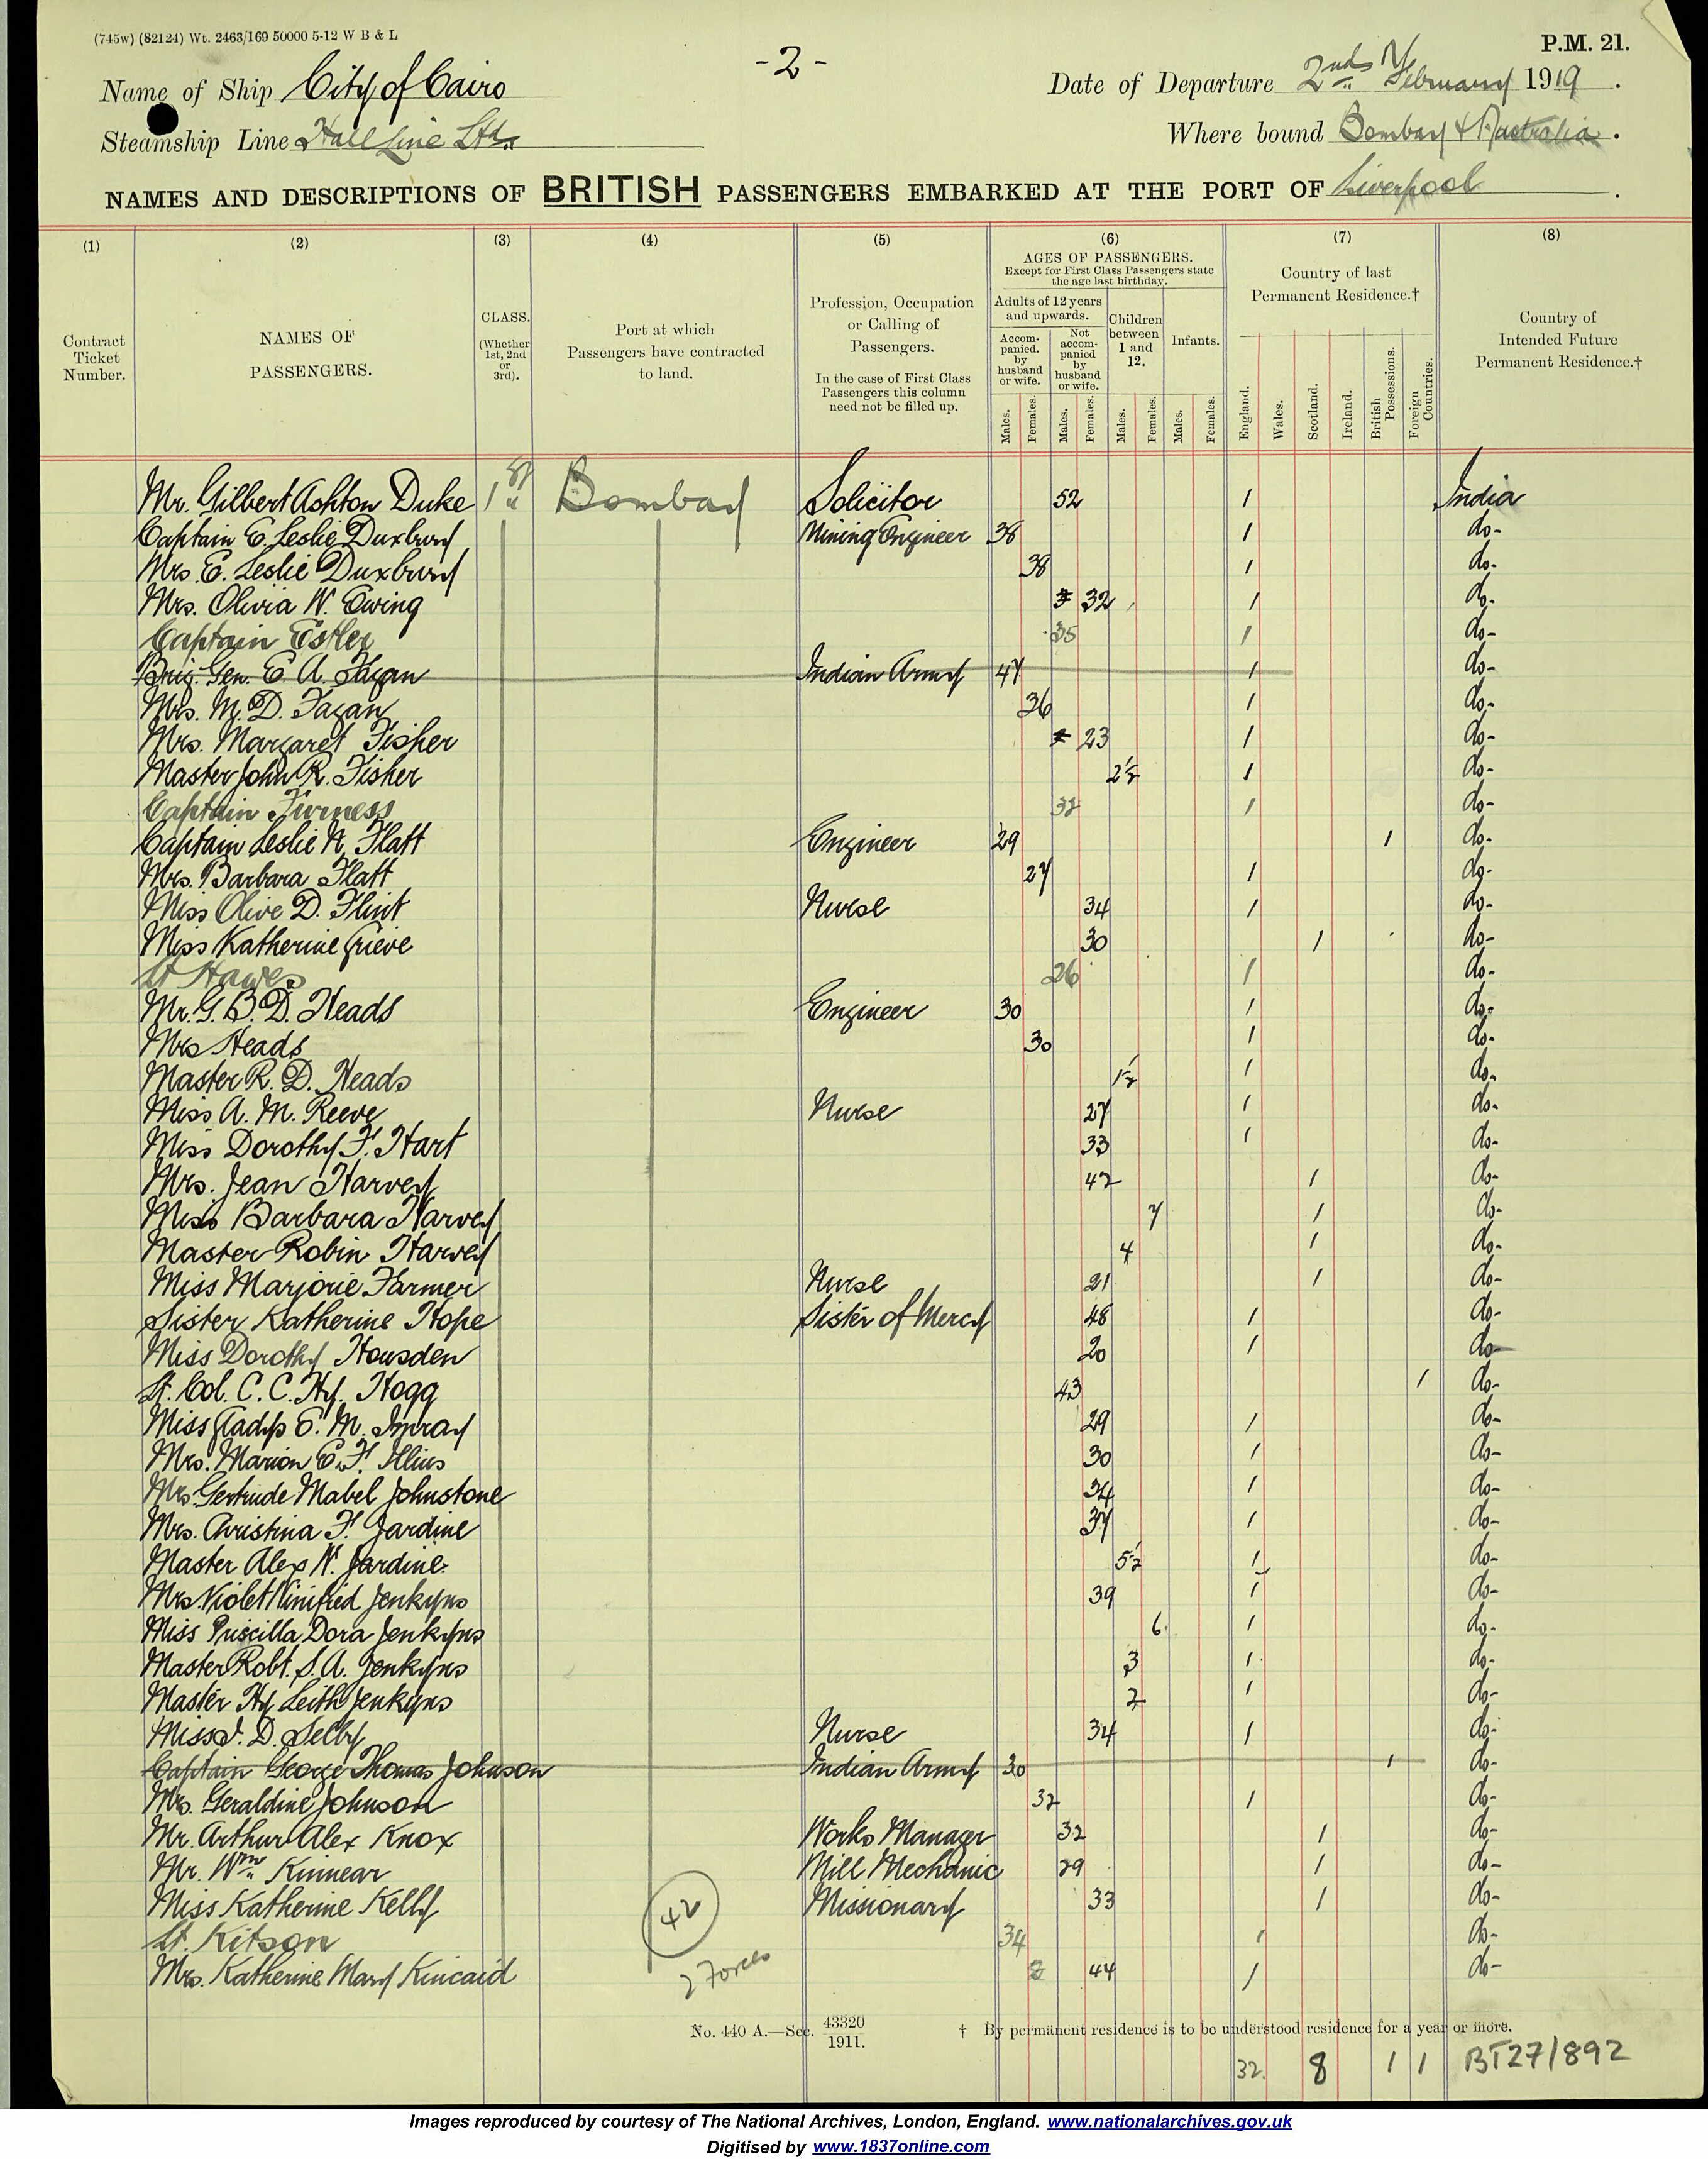 (745w) (82124) Wt. 2463/169 50000 5-12 W B & L
- 2 -
P.M. 21.
Name of Ship City of Cairo
Date of Departure 2nd February 1919.
Steamship Line Hall Line Ltd.
Where bound Bombay & Australia.
NAMES AND DESCRIPTIONS OF BRITISH PASSENGERS EMBARKED AT THE PORT OF Liverpool.
(1) (2) (3) (4) (5) (6) (7) (8)
Contract Ticket Number.
NAMES OF PASSENGERS.
CLASS. (Whether 1st, 2nd or 3rd).
Port at which Passengers have contracted to land.
Profession, Occupation or Calling of Passengers.
In the case of First Class Passengers this column need not be filled up.
AGES OF PASSENGERS.
Except for First Class Passengers state the age last birthday.
Adults of 12 years and upwards.
Accompanied. by husband or wife.
Not accompanied by husband or wife.
Children between 1 and 12.
Infants.
Males. Females. Males. Females. Males. Females. Males. Females.
Country of last Permanent Residence.†
England. Wales. Scotland. Ireland. British Possessions. Foreign Countries.
Country of Intended Future Permanent Residence.†
Mr. Gilbert Ashton Duke 1st Bombay Solicitor 52 1 India
Captain E. Leslie Duxbury Mining Engineer 38 1 do-
Mrs. E. Leslie Duxbury 38 1 do-
Mrs. Olivia W. Ewing 32 1 do-
Captain Estler 35 1 do-
Brig. Gen. E. A. Fagan Indian Army 47 1 do-
Mrs. M. D. Fagan 36 1 do-
Mrs. Margaret Fisher 23 1 do-
Master John R. Fisher 2½ 1 do-
Captain Furness 32 1 do-
Captain Leslie A. Flatt Engineer 29 1 do-
Mrs. Barbara Flatt 27 1 do-
Miss Olive D. Flint Nurse 34 1 do-
Miss Katherine Grieve 30 1 do-
Lt Hawes 26 1 do-
Mr. G. B. D. Heads Engineer 30 1 do-
Mrs Heads 30 1 do-
Master R. D. Heads 1½ 1 do-
Miss A. M. Reeve Nurse 27 1 do-
Miss Dorothy F. Hart 33 1 do-
Mrs. Jean Harvey 42 1 do-
Miss Barbara Harvey 7 1 do-
Master Robin Harvey 4 1 do-
Miss Marjorie Farmer Nurse 21 1 do-
Sister Katherine Hope Sister of Mercy 48 1 do-
Miss Dorothy Housden 20 1 do-
Lt. Col. C. C. Hy. Hogg 43 1 do-
Miss Gladys E. M. Imray 29 1 do-
Mrs. Marion E. F. Illius 30 1 do-
Mrs Gertrude Mabel Johnstone 34 1 do-
Mrs. Christina F. Jardine 37 1 do-
Master Alex N. Jardine. 5½ 1 do-
Mrs. Violet Winifred Jenkyns 39 1 do-
Miss Priscilla Dora Jenkyns 6 1 do-
Master Robt. S. A. Jenkyns 3 1 do-
Master Hy Leith Jenkyns 2 1 do-
Miss J. D. Selby Nurse 34 1 do-
Captain George Thomas Johnson Indian Army 30 1 do-
Mrs. Geraldine Johnson 32 1 do-
Mr. Arthur Alex Knox Works Manager 32 1 do-
Mr. Wm Kinnear Mill Mechanic 29 1 do-
Miss Katherine Kelly Missionary 33 1 do-
Lt. Kitson 34 1 do-
Mrs. Katherine Mary Kincaid 44 1 do-
42
2 Forces
No. 440 A.—Sec. 43320/1911.
† By permanent residence is to be understood residence for a year or more.
32. 8 1 1 BT27/892
Images reproduced by courtesy of The National Archives, London, England. www.nationalarchives.gov.uk
Digitised by www.1837online.com